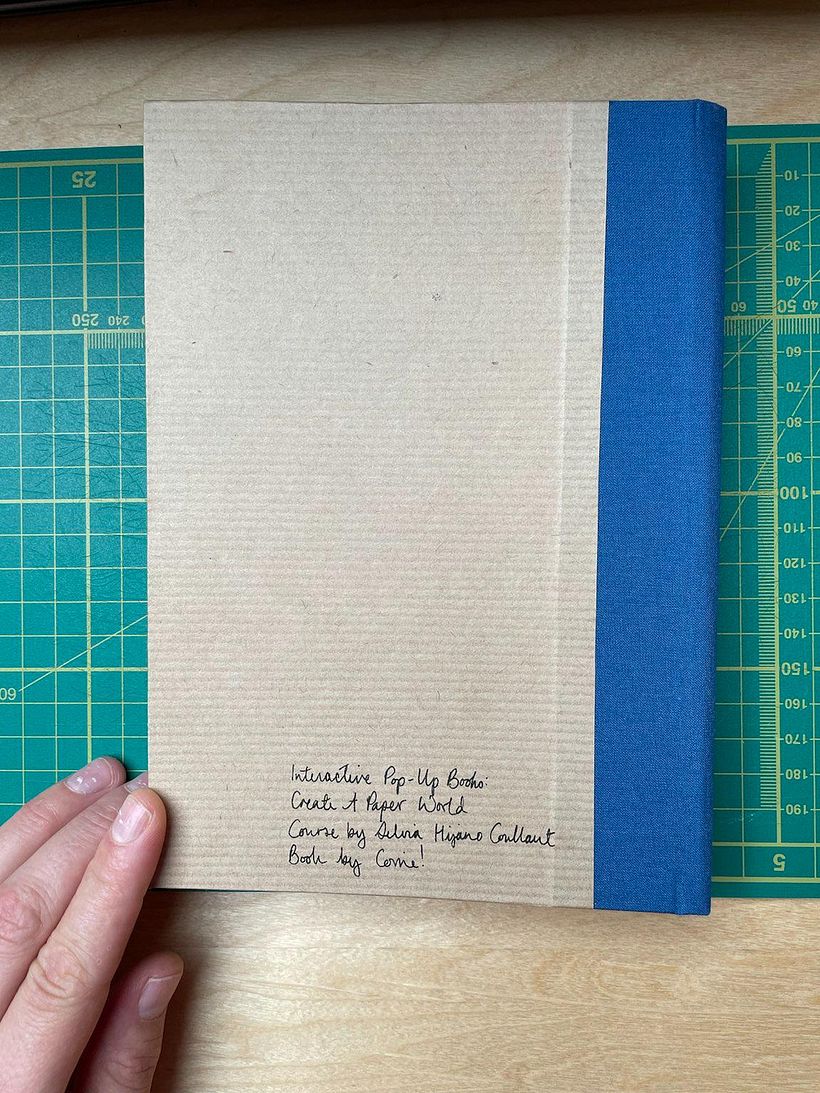 25
250 240
60
10
20
30
40
60 50
60
70
80
90
100
110
120
130
140
150
160
170
180
190
5
Interactive Pop-Up Books:
Create A Paper World
Course by Silvia Hijano Coullaut
Book by Corrie!